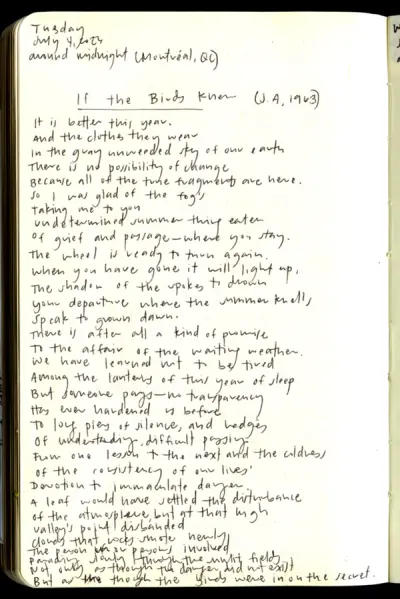 Tuesday
July 4, 2023
around midnight (Montréal, QC)
If the Birds Knew (J.A, 1963)
It is better this year.
And the clothes they wear
In the gray unweeded sky of our earth
There is no possibility of change
Because all of the true fragments are here.
So I was glad of the fog's
Taking me to you
undetermined summer thing eaten
Of grief and passage—where you stay.
The wheel is ready to turn again.
When you have gone it will light up,
The shadow of the spokes to drown
your departure where the summer knells
Speak to grown dawn.
There is after all a kind of promise
To the affair of the waiting weather.
We have learned not to be tired
Among the lanterns of this year of sleep
But someone pays—no transparency
Has ever hardened us before
To long piers of silence, and hedges
Of understanding, difficult passing
From one lesson to the next and the coldness
of the consistency of our lives'
Devotion to immaculate danger.
A leaf would have settled the disturbance
of the atmosphere, but at that high
valley's point disbanded
clouds that rocks smote newly
The person or persons involved
parading slowly through the sunlit fields
Not only as though the danger did not exist
But as though the birds were in on the secret.